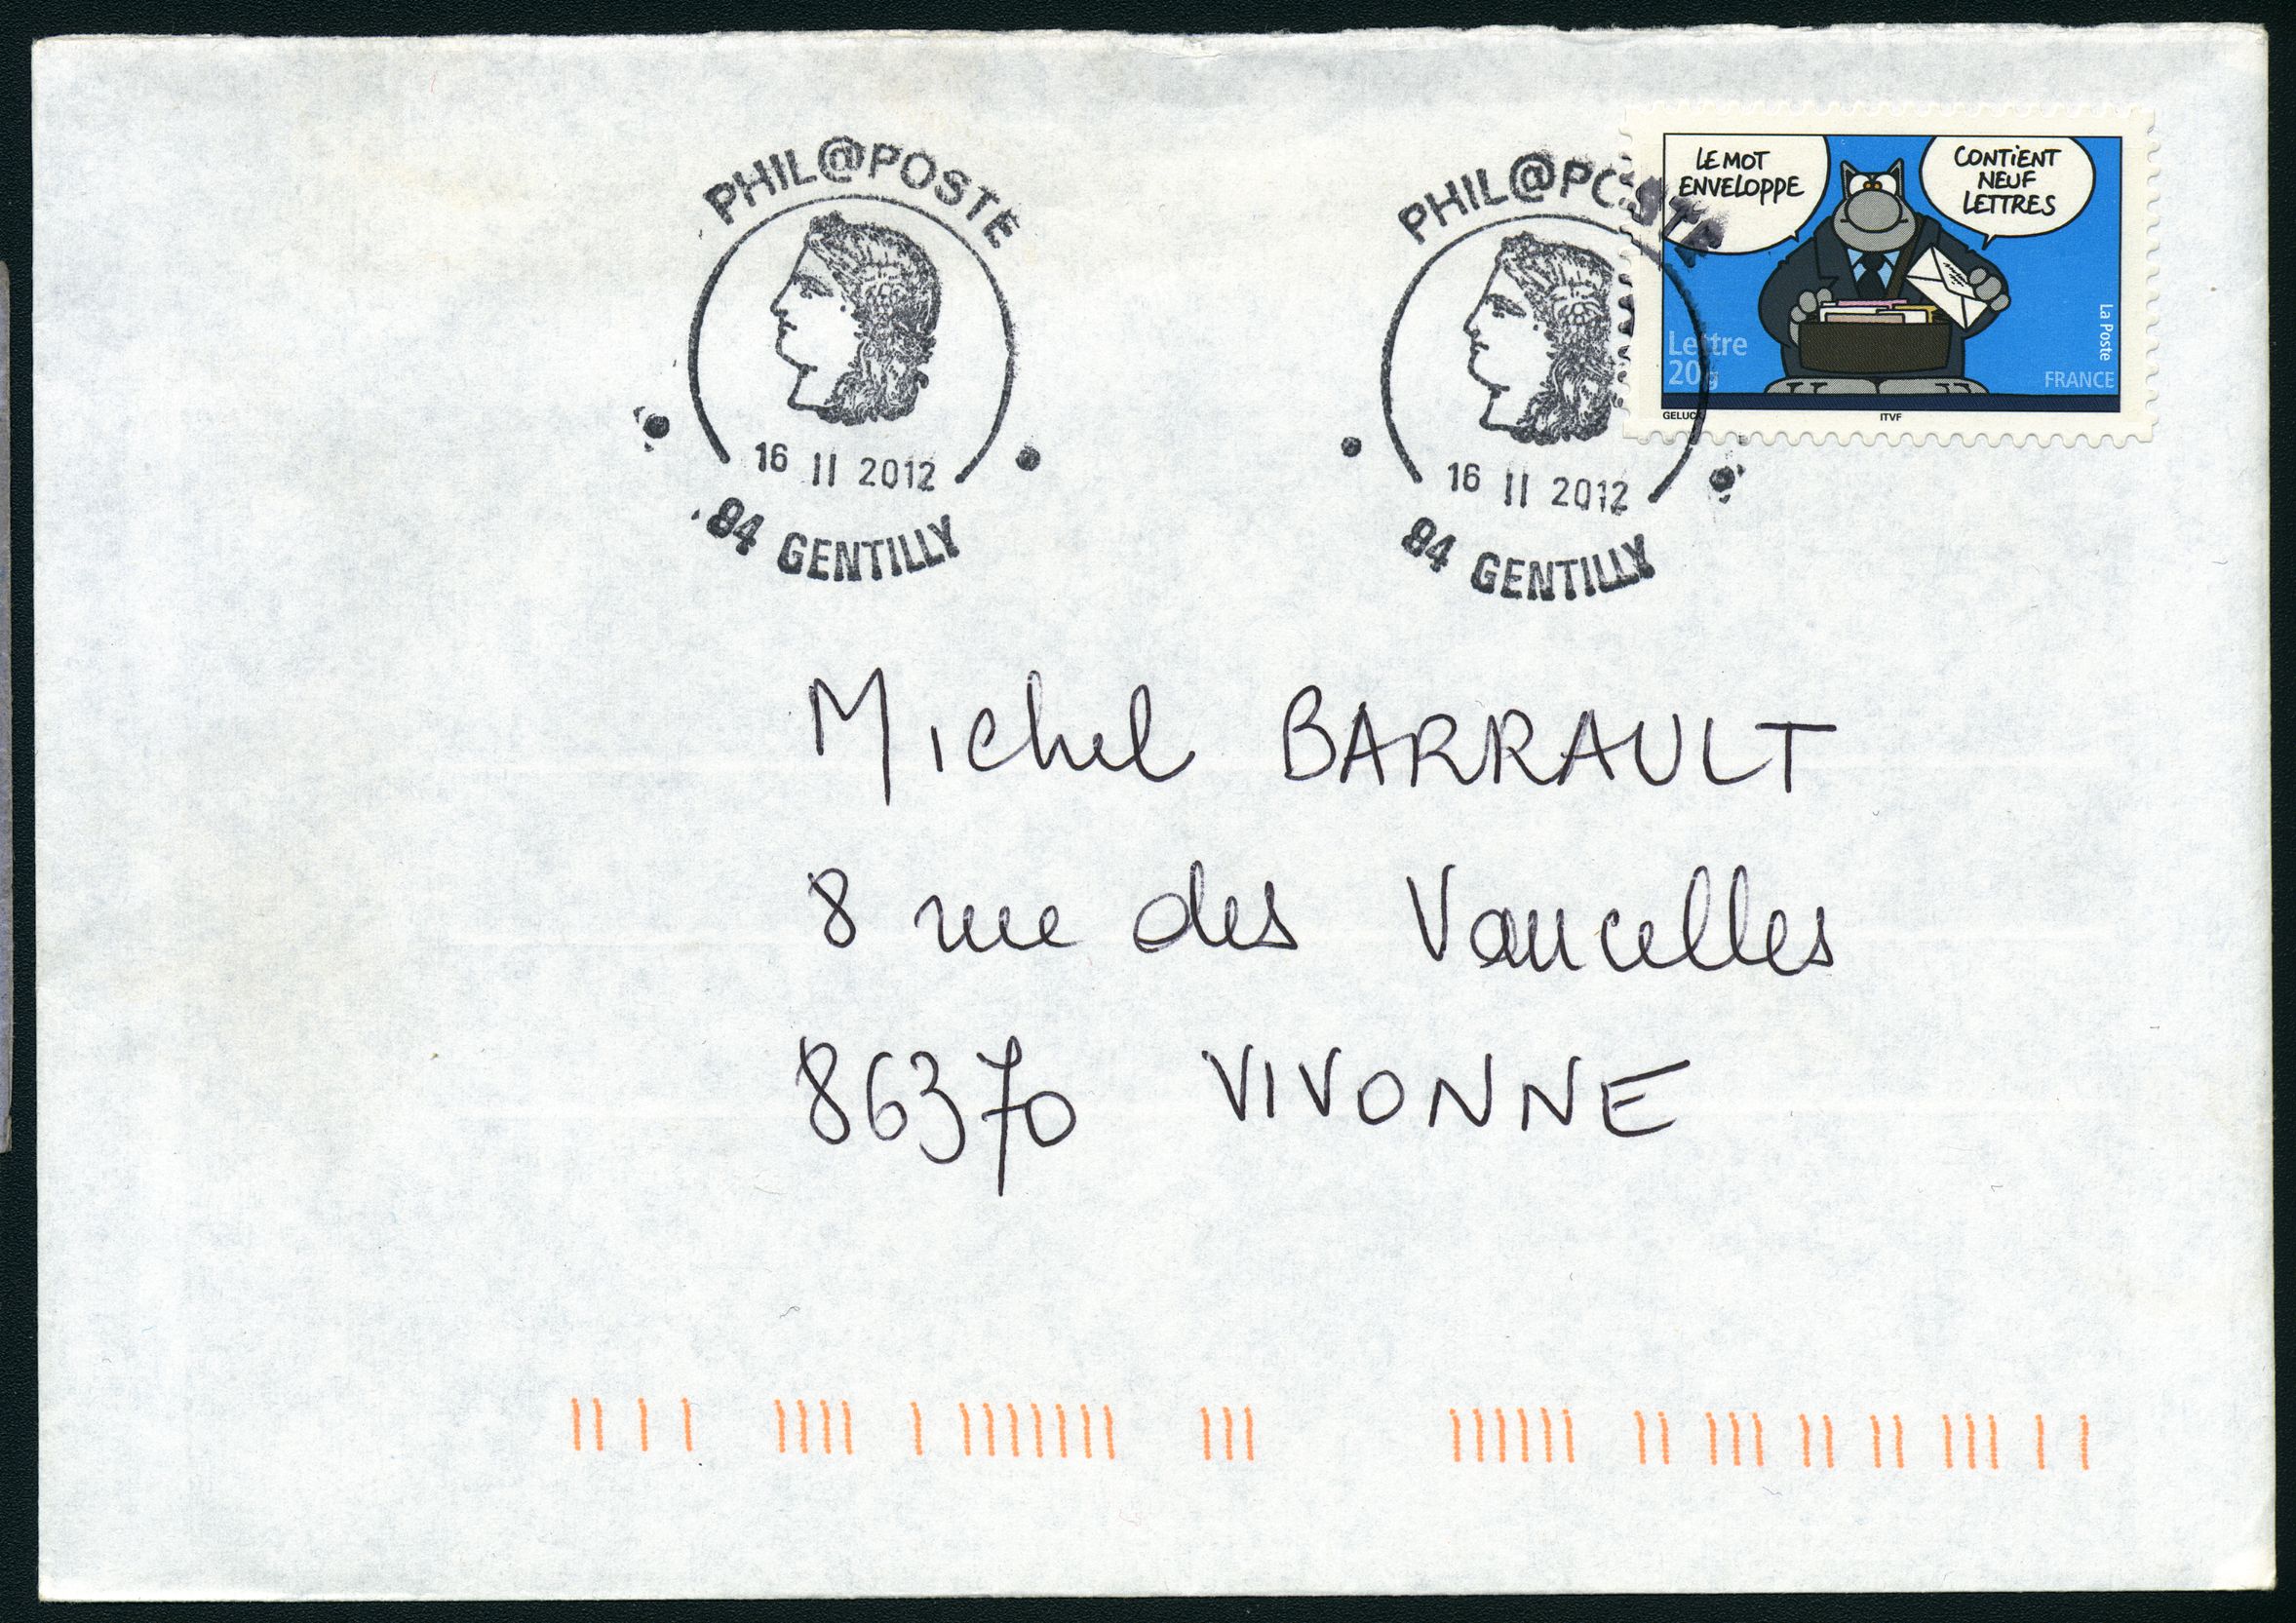 PHIL@POSTE
16 II 2012
94 GENTILLY
PHIL@POSTE
16 II 2012
94 GENTILLY
LE MOT
ENVELOPPE
CONTIENT
NEUF
LETTRES
Lettre
20g
La Poste
FRANCE
GELUCK
ITVF
Michel BARRAULT
8 rue des Vaucelles
86370 VIVONNE